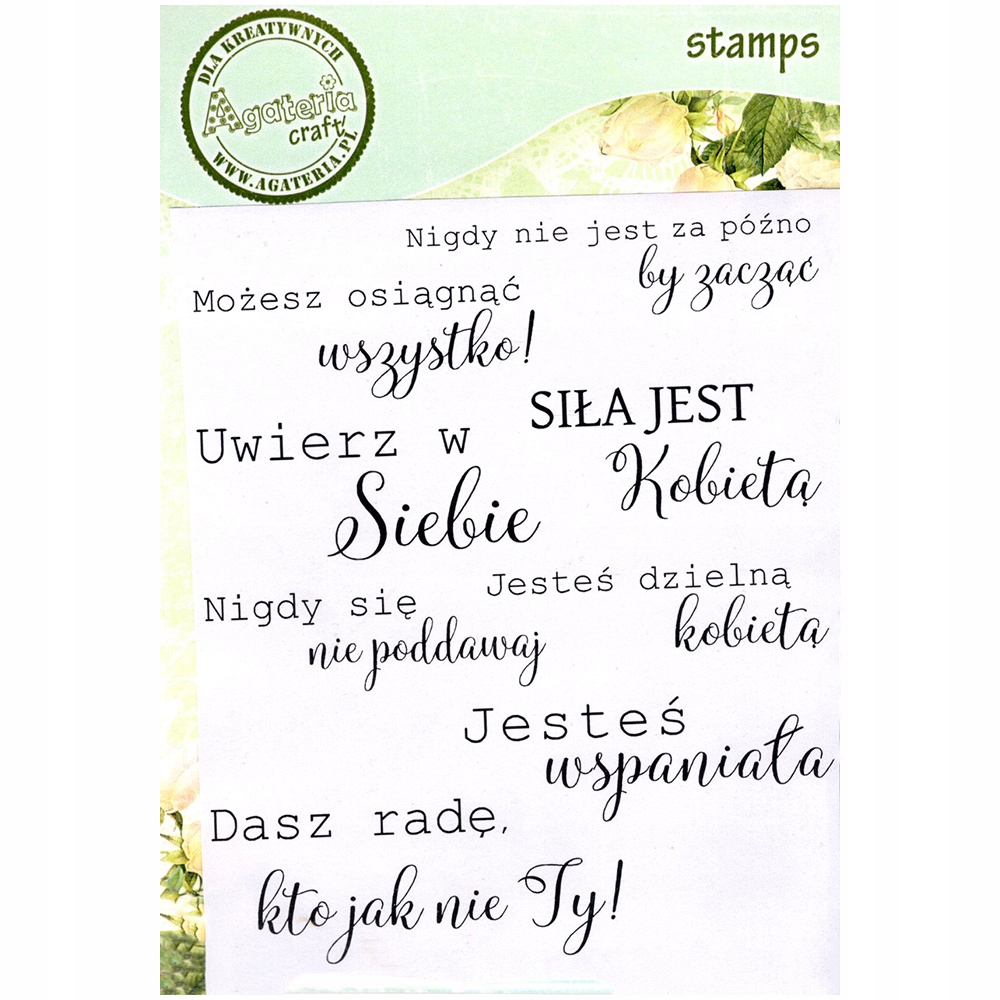 DLA KREATYWNYCH
Agateria
craft
WWW.AGATERIA.PL
stamps
Nigdy nie jest za późno
by zacząć
Możesz osiągnąć
wszystko!
SIŁA JEST
Kobietą
Uwierz w
Siebie
Jesteś dzielną
kobietą
Nigdy się
nie poddawaj
Jesteś
wspaniała
Dasz radę,
kto jak nie Ty!